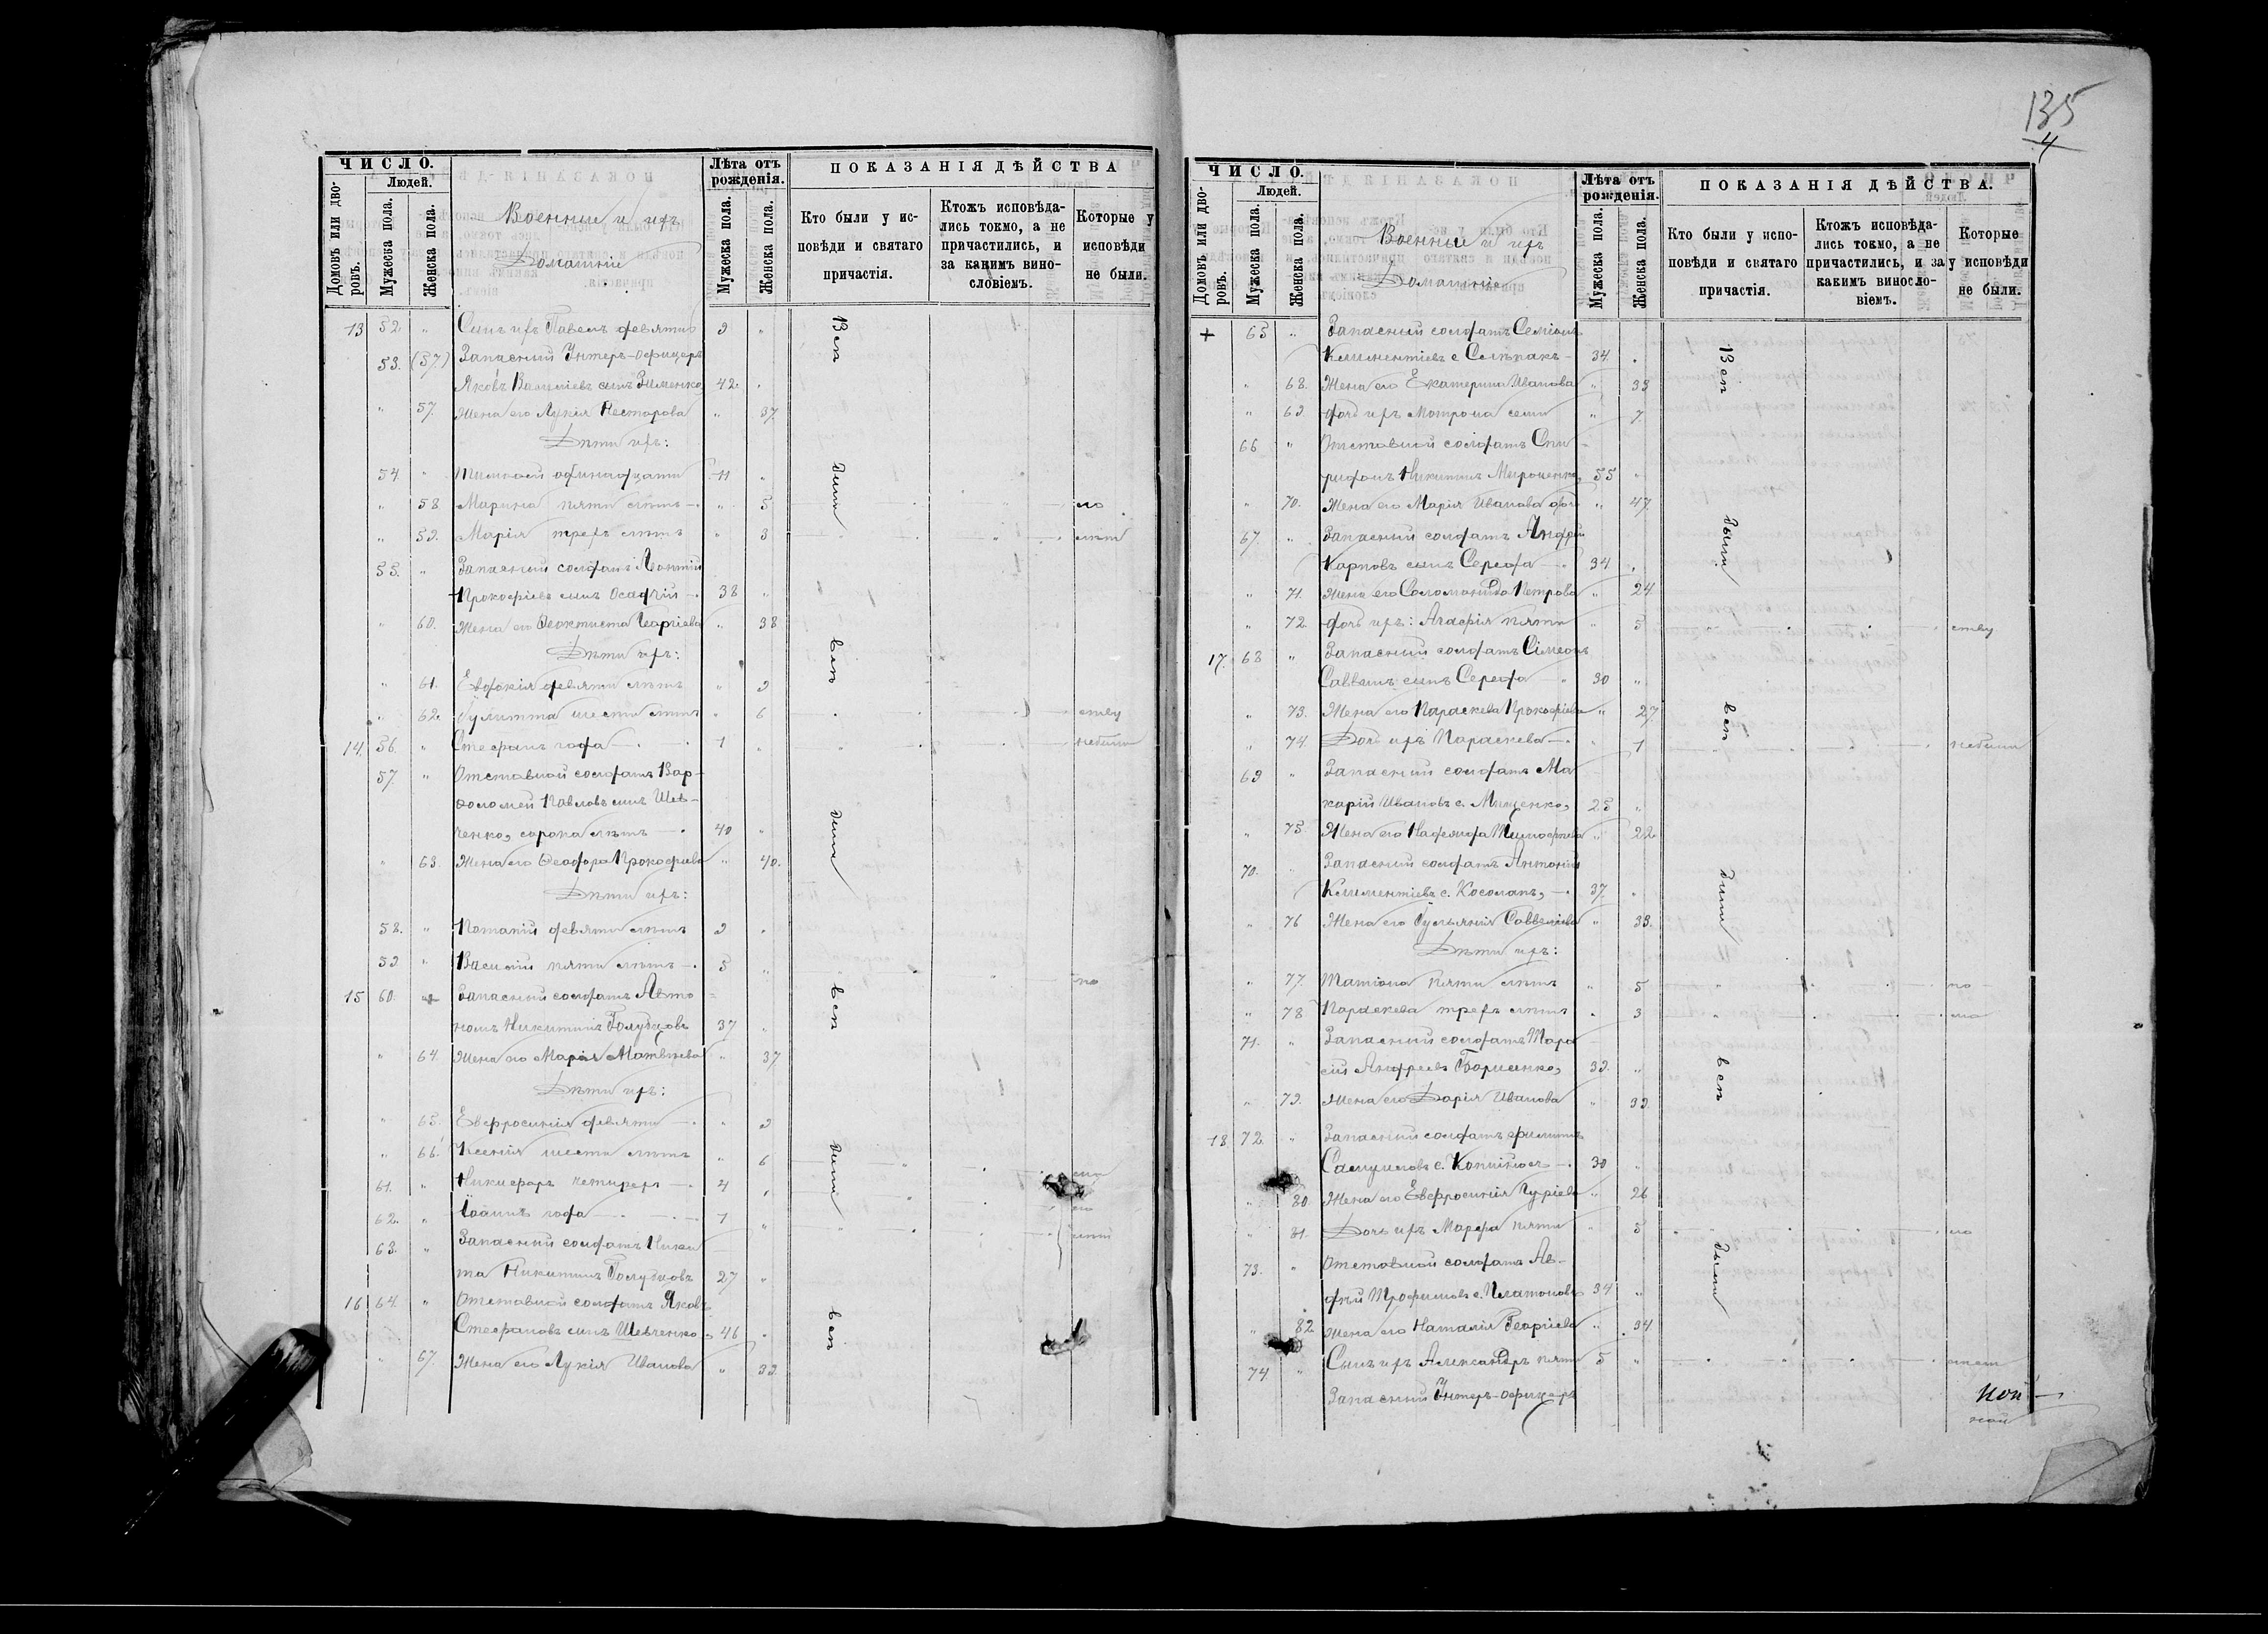 135
4
ЧИСЛО.
Домовъ или дворовъ.
Людей.
Мужеска пола.
Женска пола.
Военные и ихъ
Домашніе
Лѣта отъ рожденія.
Мужеска пола.
Женска пола.
ПОКАЗАНІЯ ДѢЙСТВА
Кто были у исповѣди и святаго причастія.
Ктожъ исповѣдались токмо, а не причастились, и за какимъ винословіемъ.
Которые у исповѣди не были.
13 52 " Сынъ ихъ Павелъ девяти 9 "
53. (57) Запасный Унтеръ-офицеръ
Яковъ Василіевъ сынъ Зименко, 42. "
" 57. Жена его Лукія Несторова " 37.
Дѣти ихъ:
54. " Тимоѳей одинадцати 11 "
" 58 Марина пяти лѣтъ " 5
" 59. Марія трехъ лѣтъ " 3
55. " Запасный солдатъ Леонтій
Прокофіевъ сынъ Осадчій 38 "
" 60. Жена его Ѳеоктиста Георгіева " 38
Дѣти ихъ:
" 61. Евдокія девяти лѣтъ " 9
" 62. Іулитта шести лѣтъ " 6
14. 56. " Стефанъ года 1 "
57. " Отставной солдатъ Вар-
ѳоломей Павловъ сынъ Шев-
ченко, сорока лѣтъ 40 "
" 63. Жена его Ѳеодора Прокофіева " 40.
Дѣти ихъ:
58. " Потапій девяти лѣтъ 9 "
59. " Василій пяти лѣтъ 5 "
15 60. Запасный солдатъ Авто
номъ Никитинъ Голубцовъ 37 "
" 64. Жена его Марія Матвѣева " 37
Дѣти ихъ:
" 65. Евфросинія девяти " 9
" 66. Ксенія шести лѣтъ " 6
61. " Никифоръ четырехъ 4 "
62. " Іоаннъ года 1 "
63. " Запасный солдатъ Ники
та Никитинъ Голубцовъ 27 "
16 64. " Отставной солдатъ Яковъ
Стефановъ сынъ Шевченко 46 "
" 67. Жена его Лукія Иванова " 39.
ЧИСЛО.
Домовъ или дворовъ.
Людей.
Мужеска пола.
Женска пола.
Военные и ихъ
Домашніе
Лѣта отъ рожденія.
Мужеска пола.
Женска пола.
ПОКАЗАНІЯ ДѢЙСТВА.
Кто были у исповѣди и святаго причастія.
Ктожъ исповѣдались токмо, а не причастились, и за какимъ винословіемъ.
Которые у исповѣди не были.
+ 65 " Запасный солдатъ Семіонъ
Климентіевъ с 34 "
" 68. Жена его Екатерина Иванова " 33
" 69. дочь ихъ Мотрона семи " 7.
66 " Отставной солдатъ Спи
ридонъ Никитинъ Мироненко, 55 "
" 70. Жена его Марія Иванова " 47.
67. " Запасный солдатъ Андрей
Карповъ сынъ Середа 34 "
" 71. Жена его Соломонида Петрова " 24.
" 72. дочь ихъ: Агафія пяти " 5
17. 68 " Запасный солдатъ Сімеонъ
сынъ Середа 30 "
" 73. Жена его Параскева Прокофіева " 27.
" 74. Дочь ихъ Параскева " 1
69 " Запасный солдатъ Ма
карій Ивановъ с. Мищенко, 25 "
" 75. Жена его Надежда Тимофіева " 22.
70. " Запасный солдатъ Антоній
Климентіевъ с. Косолапъ, 37. "
" 76 Жена его Іуліанія " 33.
Дѣти ихъ:
" 77. Татіана пяти лѣтъ " 5
" 78 Параскева трехъ лѣтъ " 3
71. " Запасный солдатъ Тара
сій Андреевъ Борисенко, 39. "
" 79. Жена его Дарія Иванова " 39.
18 72. " Запасный солдатъ Филиппъ
Самуиловъ с. 30 "
" 80. Жена его Евфросинія Гуріева " 26
" 81. Дочь ихъ Марфа пяти " 5
73. " Отставной солдатъ Ав-
дѣй Трофимовъ с. Платоновъ 34 "
" 82 Жена его Наталія Георгіева " 34
74 " Сынъ ихъ Александръ пяти 5 "
Запасный Унтеръ-офицеръ